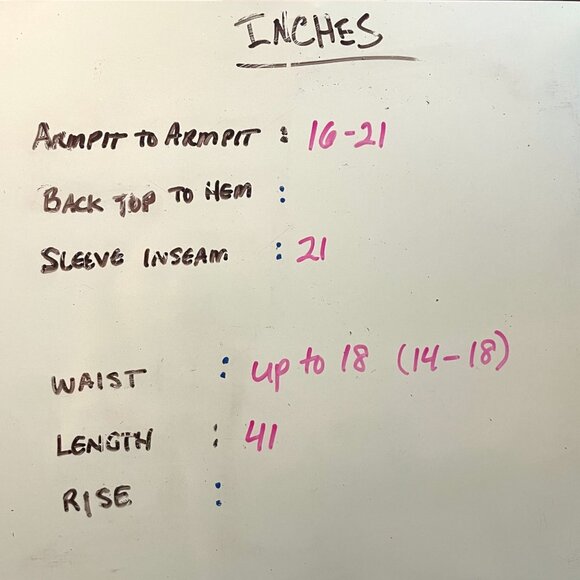 INCHES
ARMPIT TO ARMPIT : 16-21
BACK TOP TO HEM :
SLEEVE INSEAM : 21
WAIST : up to 18 (14-18)
LENGTH : 41
RISE :